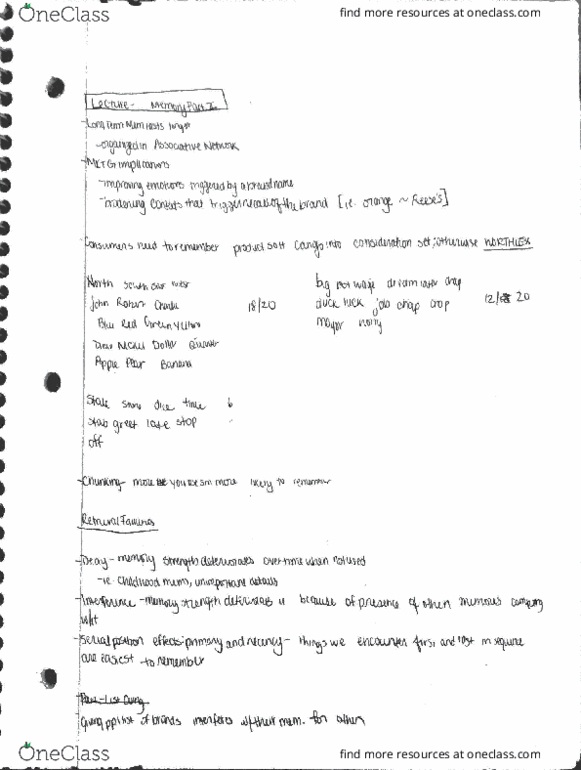 OneClass
find more resources at oneclass.com
Lecture - Memory Part
Long Term Mem lasts longer
-organized in Associative Network
-MKTG implications
-improving emotions triggered by a brand name
-broadening contexts that trigger recall of the brand [i.e. orange ~ Reese's]
-Consumers need to remember product so it can go into consideration set; otherwise WORTHLESS
North south east west
big not wage dream later chap
John Robert Charlie
18/20
duck luck job chap crop
12/ 20
Blue Red Green Yellow
mayor noisy
Dime Nickel Dollar Quarter
Apple Pear Banana
Stale same dice time 6
stab greet late stop
off
-Chunking- more you use more likely to remember
Retrieval Failures
-Decay - memory strength deteriorates overtime when not used
-ie. childhood mems, unimportant details
-Interference - memory strength because of presence of other memories competing
w/ it
-serial position effects: primary and recency - things we encounter first and last in sequence
are easiest to remember
Part-List Cuing
Giving ppl list of brands interferes w/ their mem. for other
OneClass
find more resources at oneclass.com